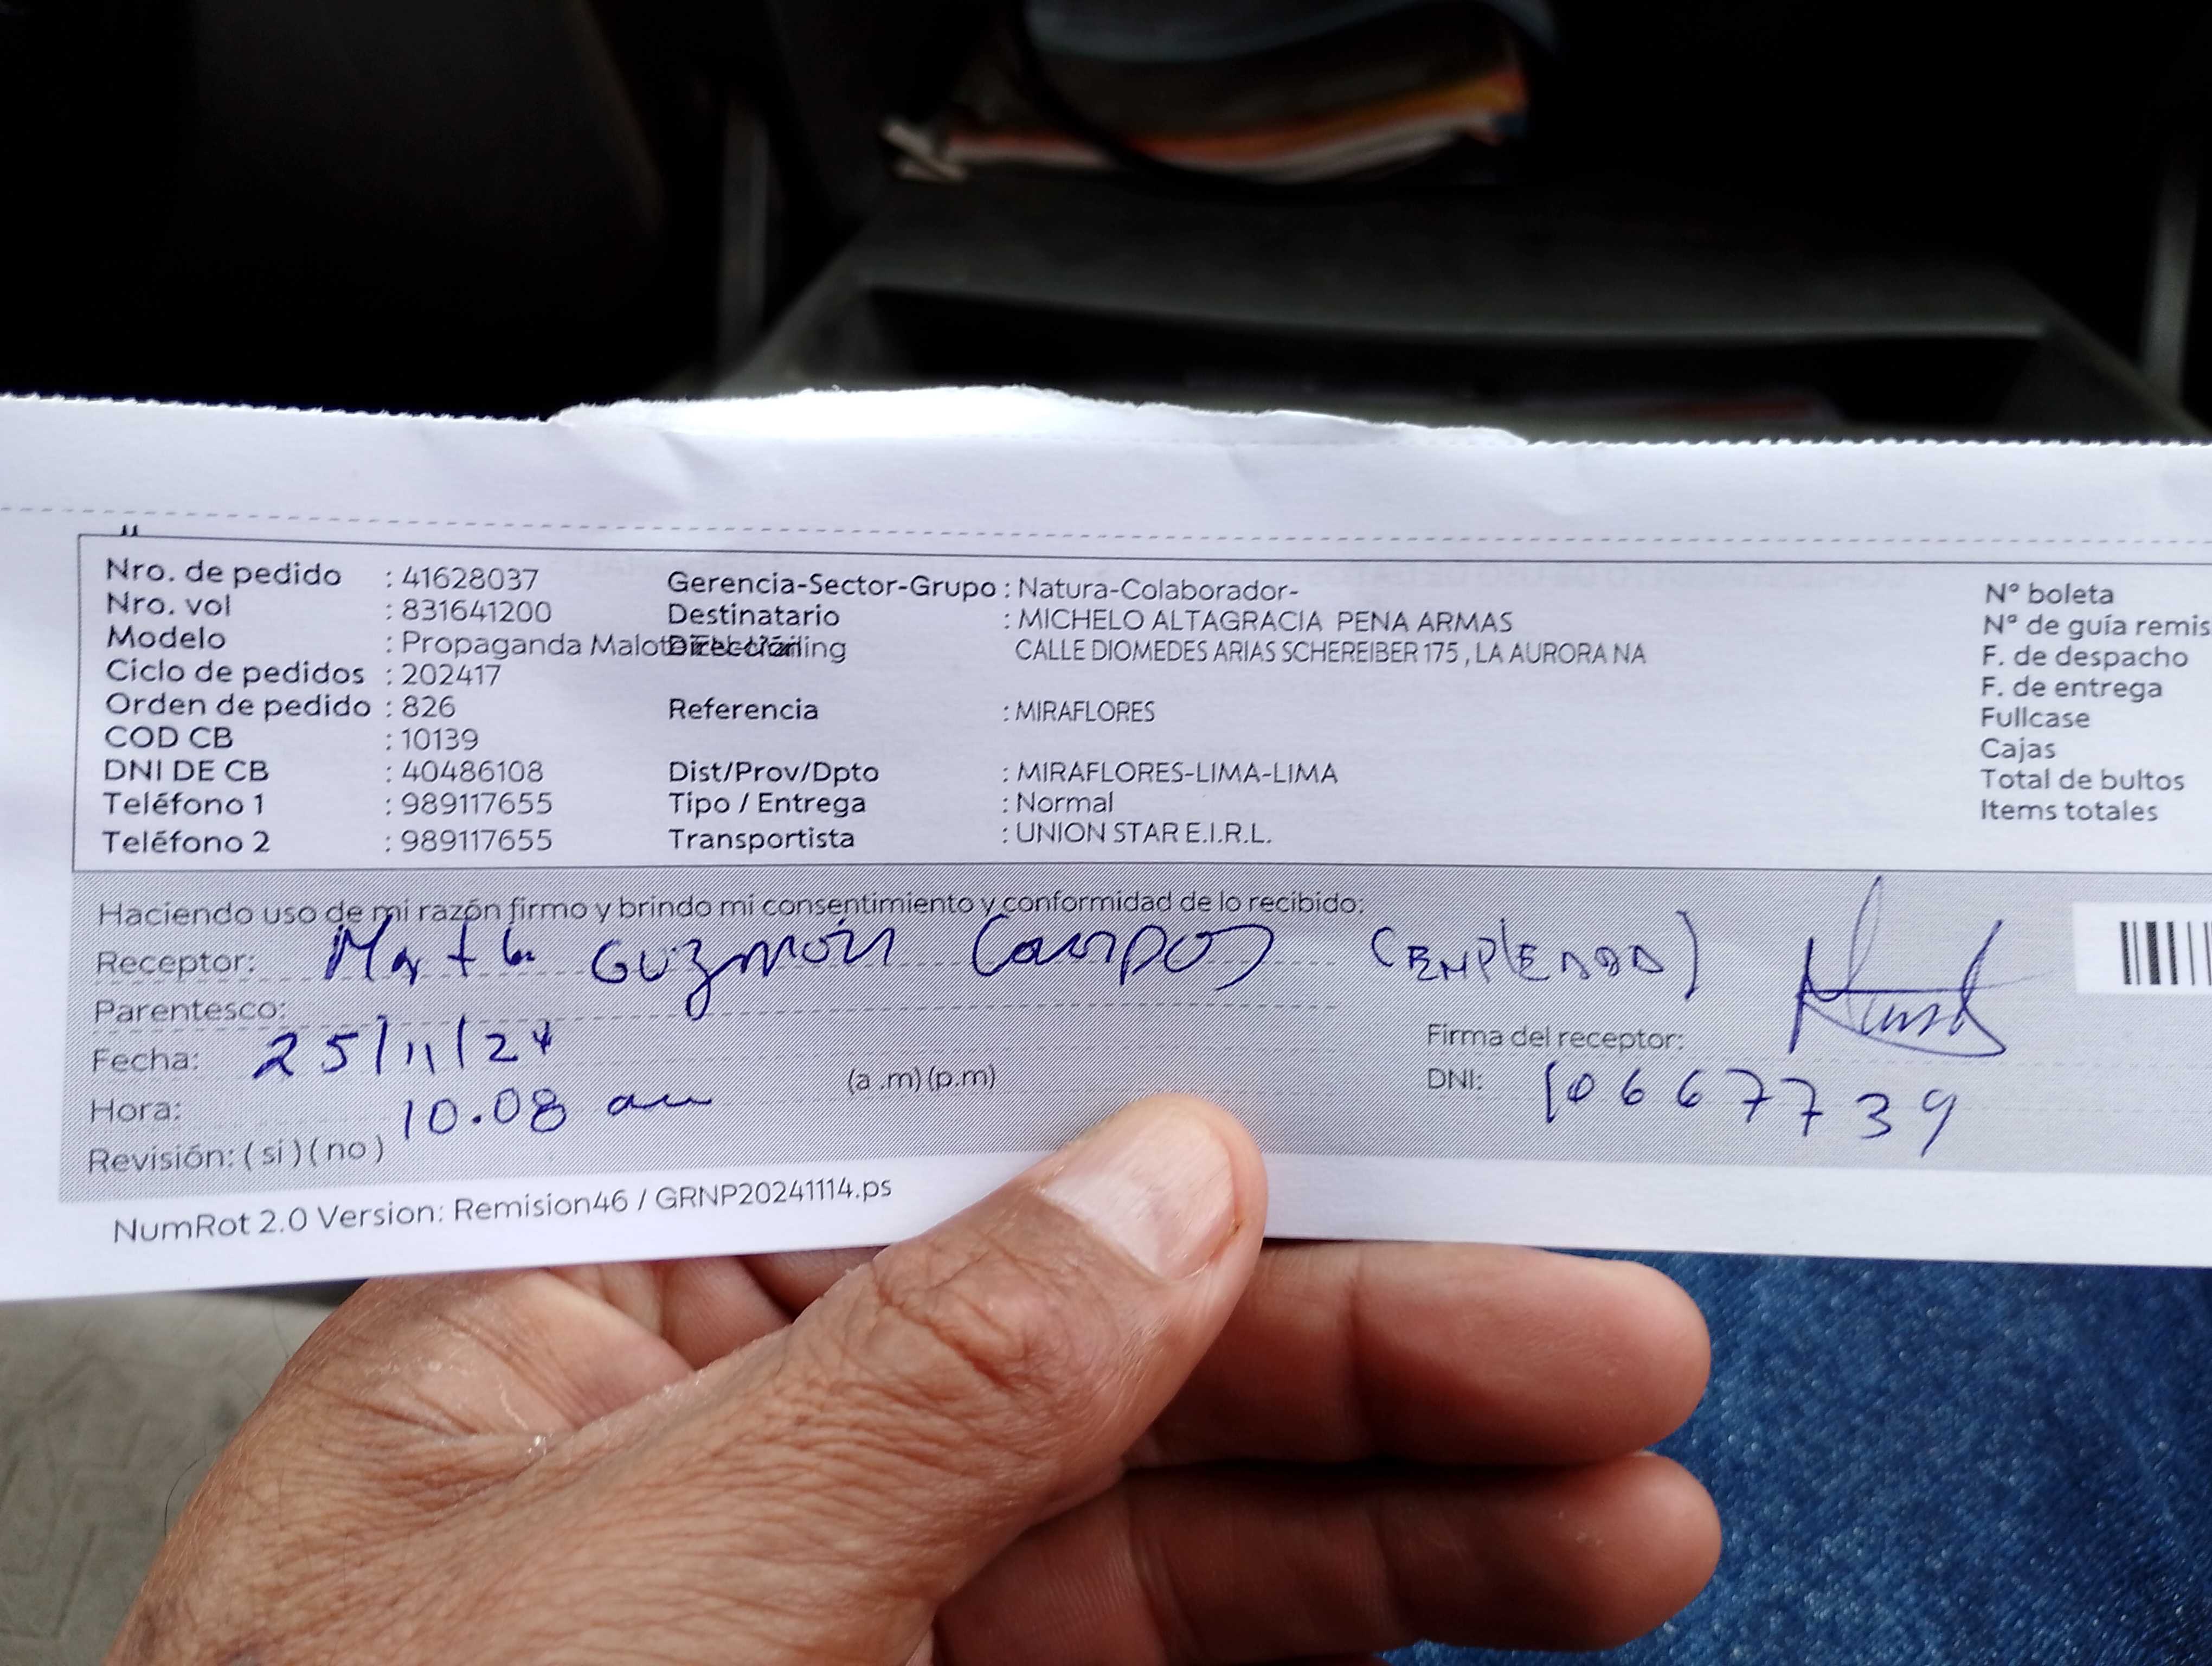 Nro. de pedido : 41628037
Nro. vol : 831641200
Modelo : Propaganda
Ciclo de pedidos : 202417
Orden de pedido : 826
COD CB : 10139
DNI DE CB : 40486108
Teléfono 1 : 989117655
Teléfono 2 : 989117655
Gerencia-Sector-Grupo : Natura-Colaborador-
Destinatario : MICHELO ALTAGRACIA PENA ARMAS
Dirección CALLE DIOMEDES ARIAS SCHEREIBER 175 , LA AURORA NA
Referencia : MIRAFLORES
Dist/Prov/Dpto : MIRAFLORES-LIMA-LIMA
Tipo / Entrega : Normal
Transportista : UNION STAR E.I.R.L.
N° boleta
N° de guía remis
F. de despacho
F. de entrega
Fullcase
Cajas
Total de bultos
Items totales
Haciendo uso de mi razón firmo y brindo mi consentimiento y conformidad de lo recibido:
Receptor: Martha Guzmán Campos (EMPLEADA)
Parentesco:
Fecha: 25/11/24
Hora: 10.08 am (a .m) (p.m)
Revisión: ( si ) ( no )
Firma del receptor:
DNI: 10667739
NumRot 2.0 Version: Remision46 / GRNP20241114.ps